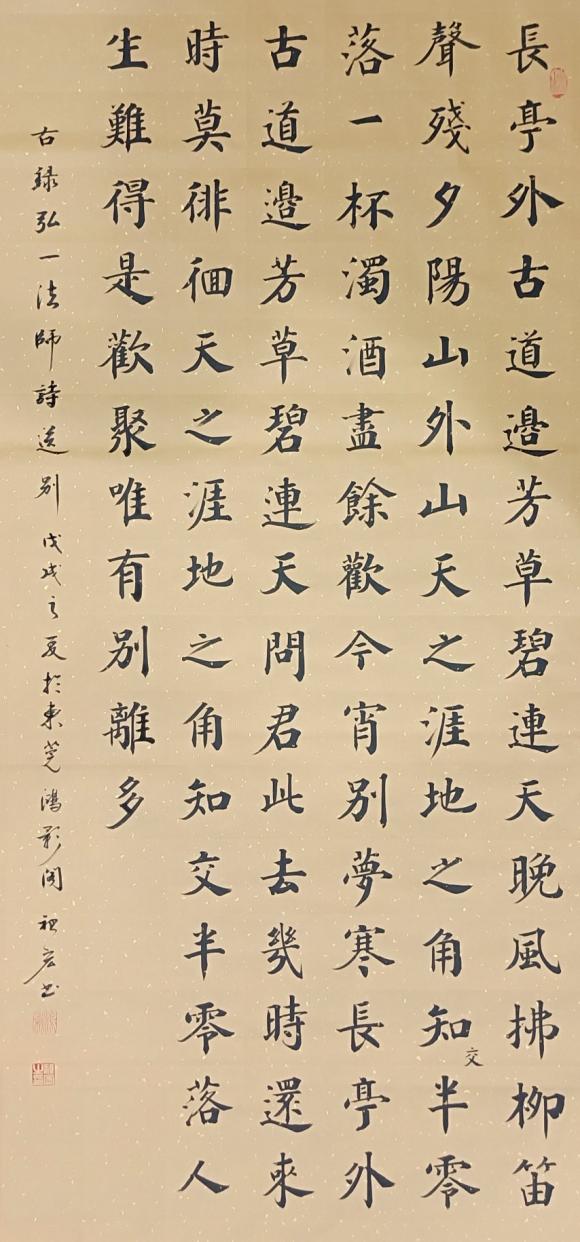 長亭外古道邊芳草碧連天晚風拂柳笛
聲殘夕陽山外山天之涯地之角知交半零
落一杯濁酒盡餘歡今宵別夢寒長亭外
古道邊芳草碧連天問君此去幾時還來
時莫徘徊天之涯地之角知交半零落人
生難得是歡聚唯有別離多
古錄弘一法師詩送別戊戌之夏於東莞鴻影閣祖宏书